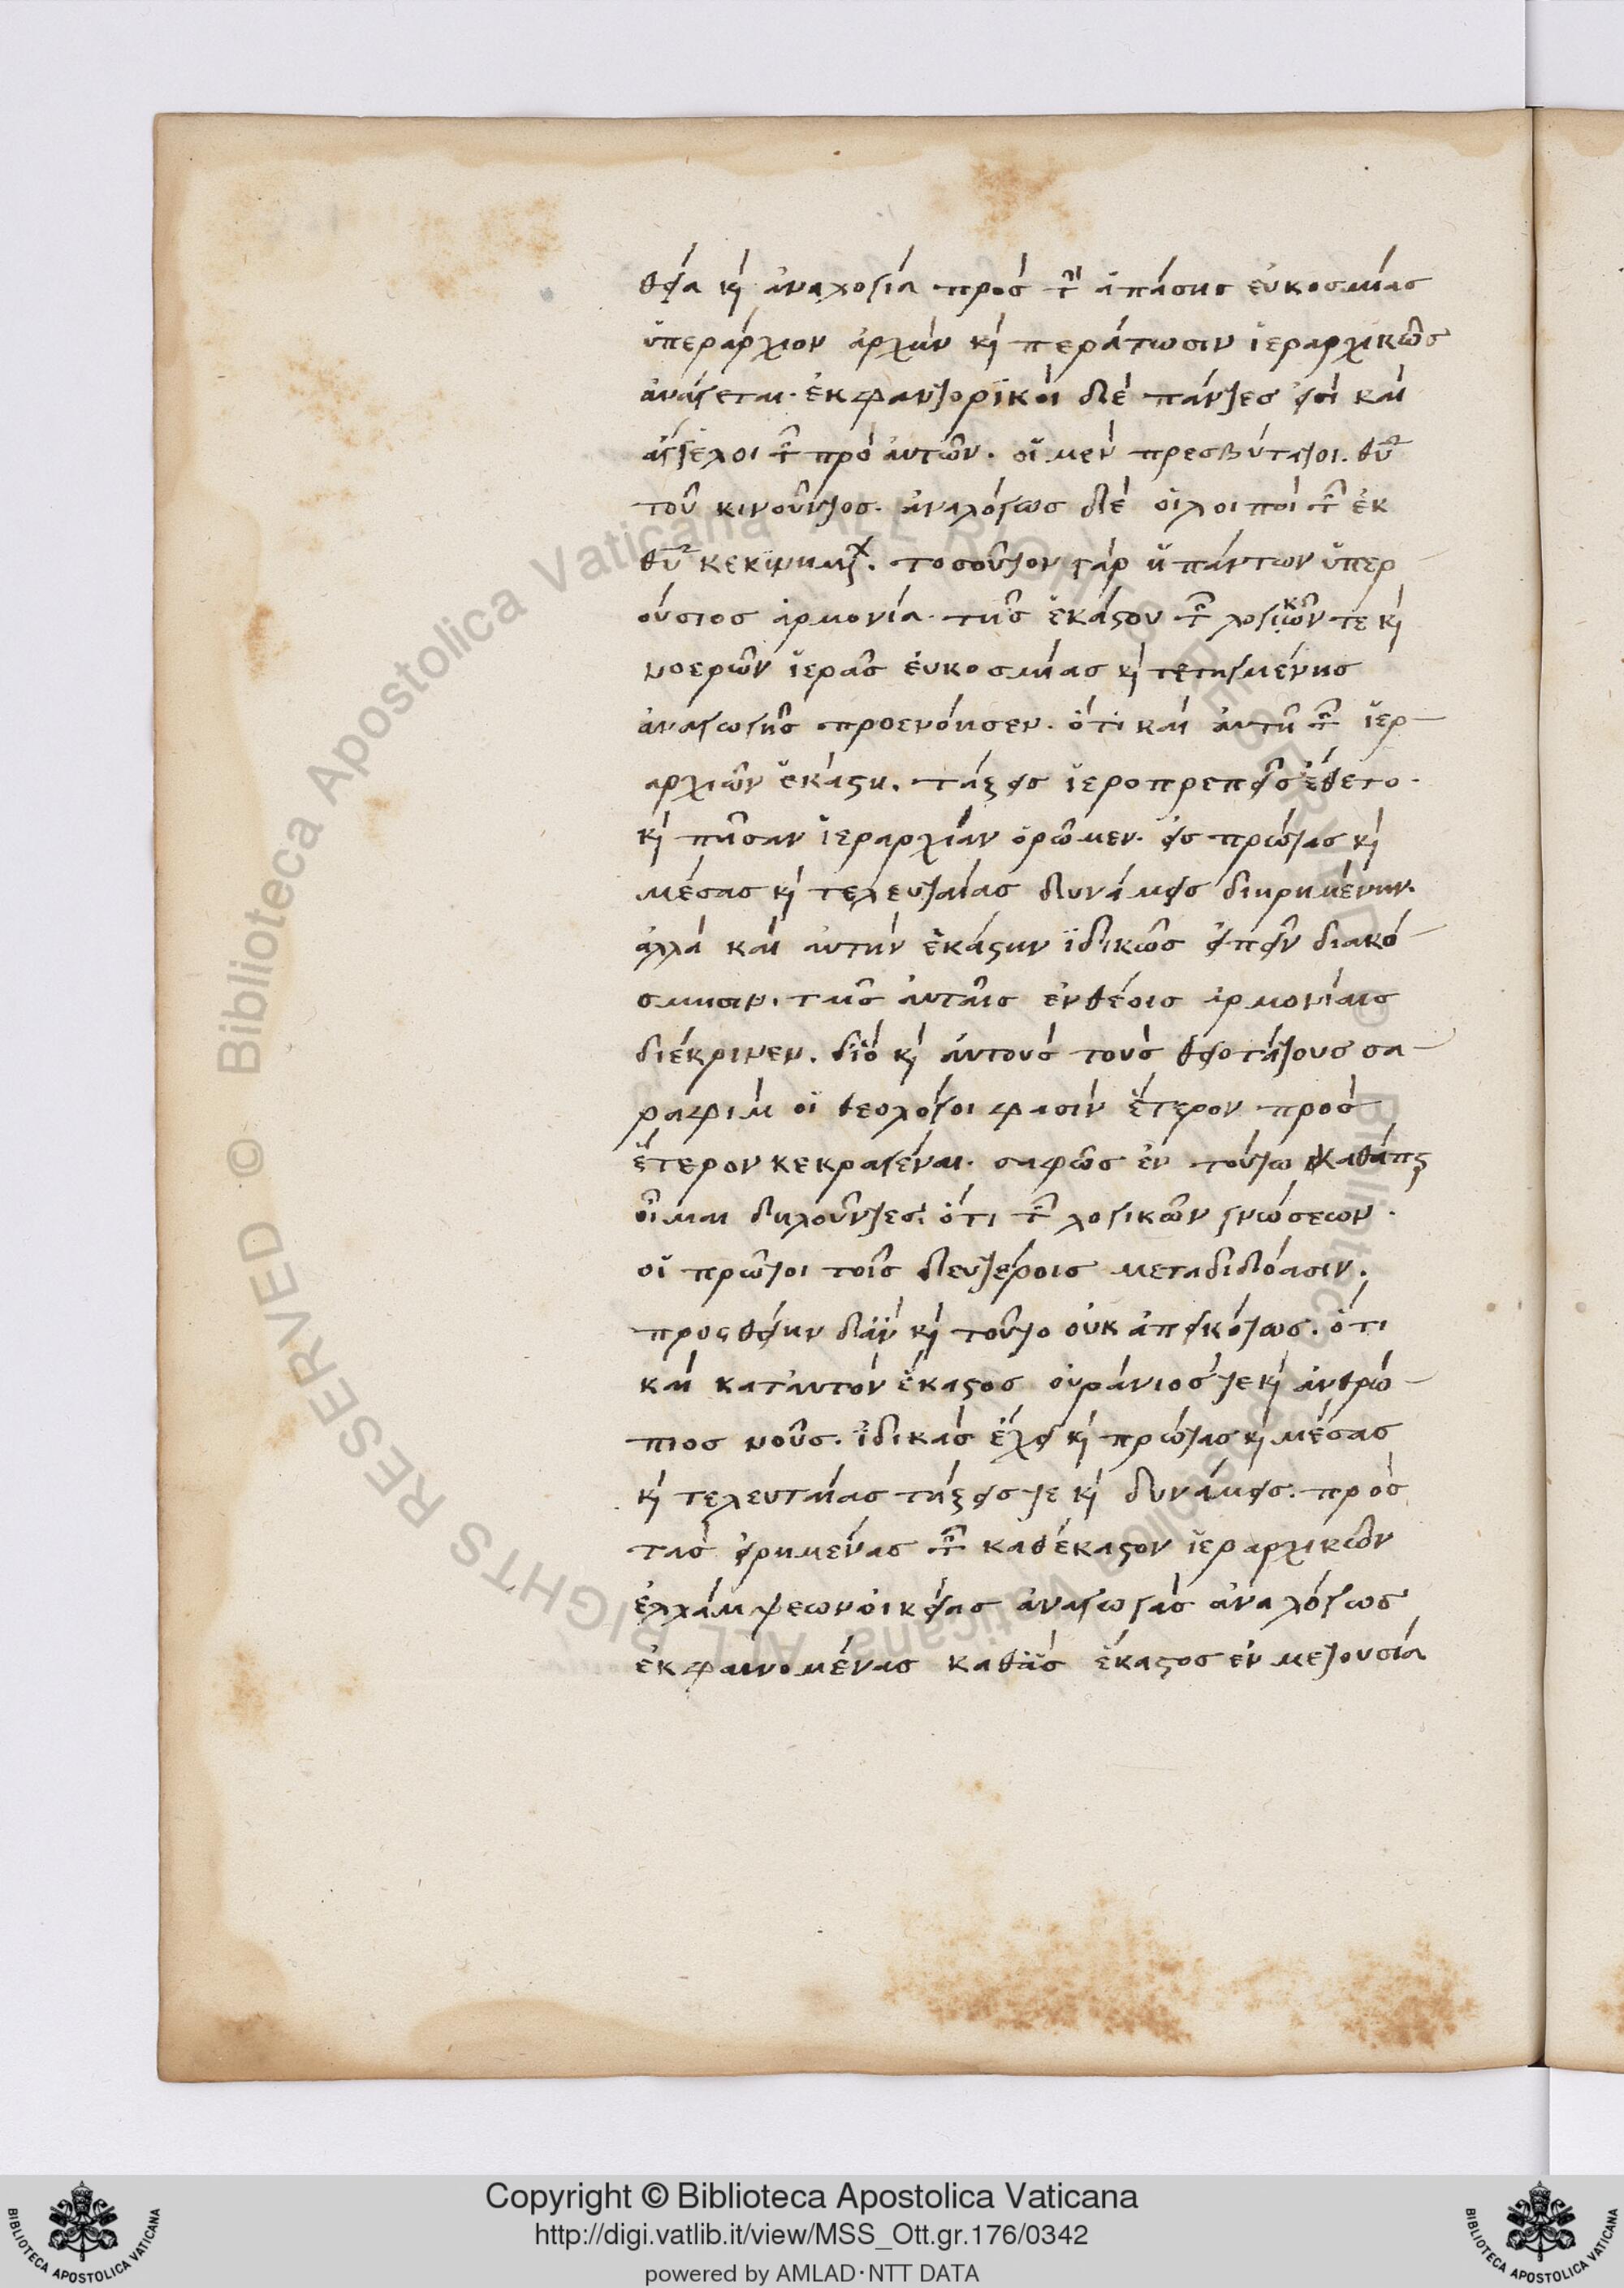 θεία καὶ ἀναλογία πρὸς τὴν ἁπάσης εὐκοσμίας
ὑπεράρχιον ἀρχὴν καὶ περάτωσιν ἱεραρχικῶς
ἀνάγεται. ἐκφαντορικοὶ δὲ πάντες εἰσὶ καὶ
ἄγγελοι τῶν πρὸ αὐτῶν. οἱ μὲν πρεσβύτατοι. θυ
τοῦ κινοῦντος. ἀναλόγως δὲ οἱ λοιποὶ τῶν ἐκ
θυ κεκινημένων. τοσοῦτον γὰρ ἡ πάντων ὑπερ
ούσιος ἁρμονία. τῆς ἑκάστου τῶν λογικῶν τε καὶ
νοερῶν ἱερᾶς εὐκοσμίας καὶ τεταγμένης
ἀναγωγῆς προενόησεν. ὅτι καὶ αὐτῇ τῶν ἱερ
αρχιῶν ἑκάστῃ. τάξεις ἱεροπρεπεῖς ἔθετο.
καὶ πᾶσαν ἱεραρχίαν ὁρῶμεν. εἰς πρώτας καὶ
μέσας καὶ τελευταίας δυνάμεις διῃρημένην.
ἀλλὰ καὶ αὐτὴν ἑκάστην ἰδικῶς εἰπεῖν διακό
σμησιν. ταῖς αὐταῖς ἐνθέοις ἁρμονίαις
διέκρινεν. διὸ καὶ αὐτοὺς τοὺς θειοτάτους σε
ραφὶμ οἱ θεολόγοι φασὶν ἕτερον πρὸς
ἕτερον κεκραγέναι. σαφῶς ἐν τούτω καθάπερ
οἶμαι δηλοῦντες. ὅτι τῶν λογικῶν γνώσεων.
οἱ πρῶτοι τοῖς δευτέροις μεταδιδόασιν.
προςθείην δ'ἂν καὶ τοῦτο οὐκ ἀπεικότως. ὅτι
καὶ κατ'αὐτὸν ἕκαστος οὐράνιός τε καὶ ἀνθρώ
πιος νοῦς. ἰδικὰς ἔχει καὶ πρώτας καὶ μέσας
καὶ τελευταίας τάξεις τε καὶ δυνάμεις. πρὸς
τὰς εἰρημένας τῶν καθέκαστον ἱεραρχικῶν
ἐλλάμψεων οἰκείας ἀναγωγὰς ἀναλόγως
ἐκφαινομένας καθ'ἃς ἕκαστος ἐν μετουσία
Copyright © Biblioteca Apostolica Vaticana
http://digi.vatlib.it/view/MSS_Ott.gr.176/0342
powered by AMLAD·NTT DATA
BIBLIOTECA APOSTOLICA VATICANA
BIBLIOTECA APOSTOLICA VATICANA
© Biblioteca Apostolica Vaticana ALL RIGHTS RESERVED
© Biblioteca Apostolica Vaticana ALL RIGHTS RESERVED